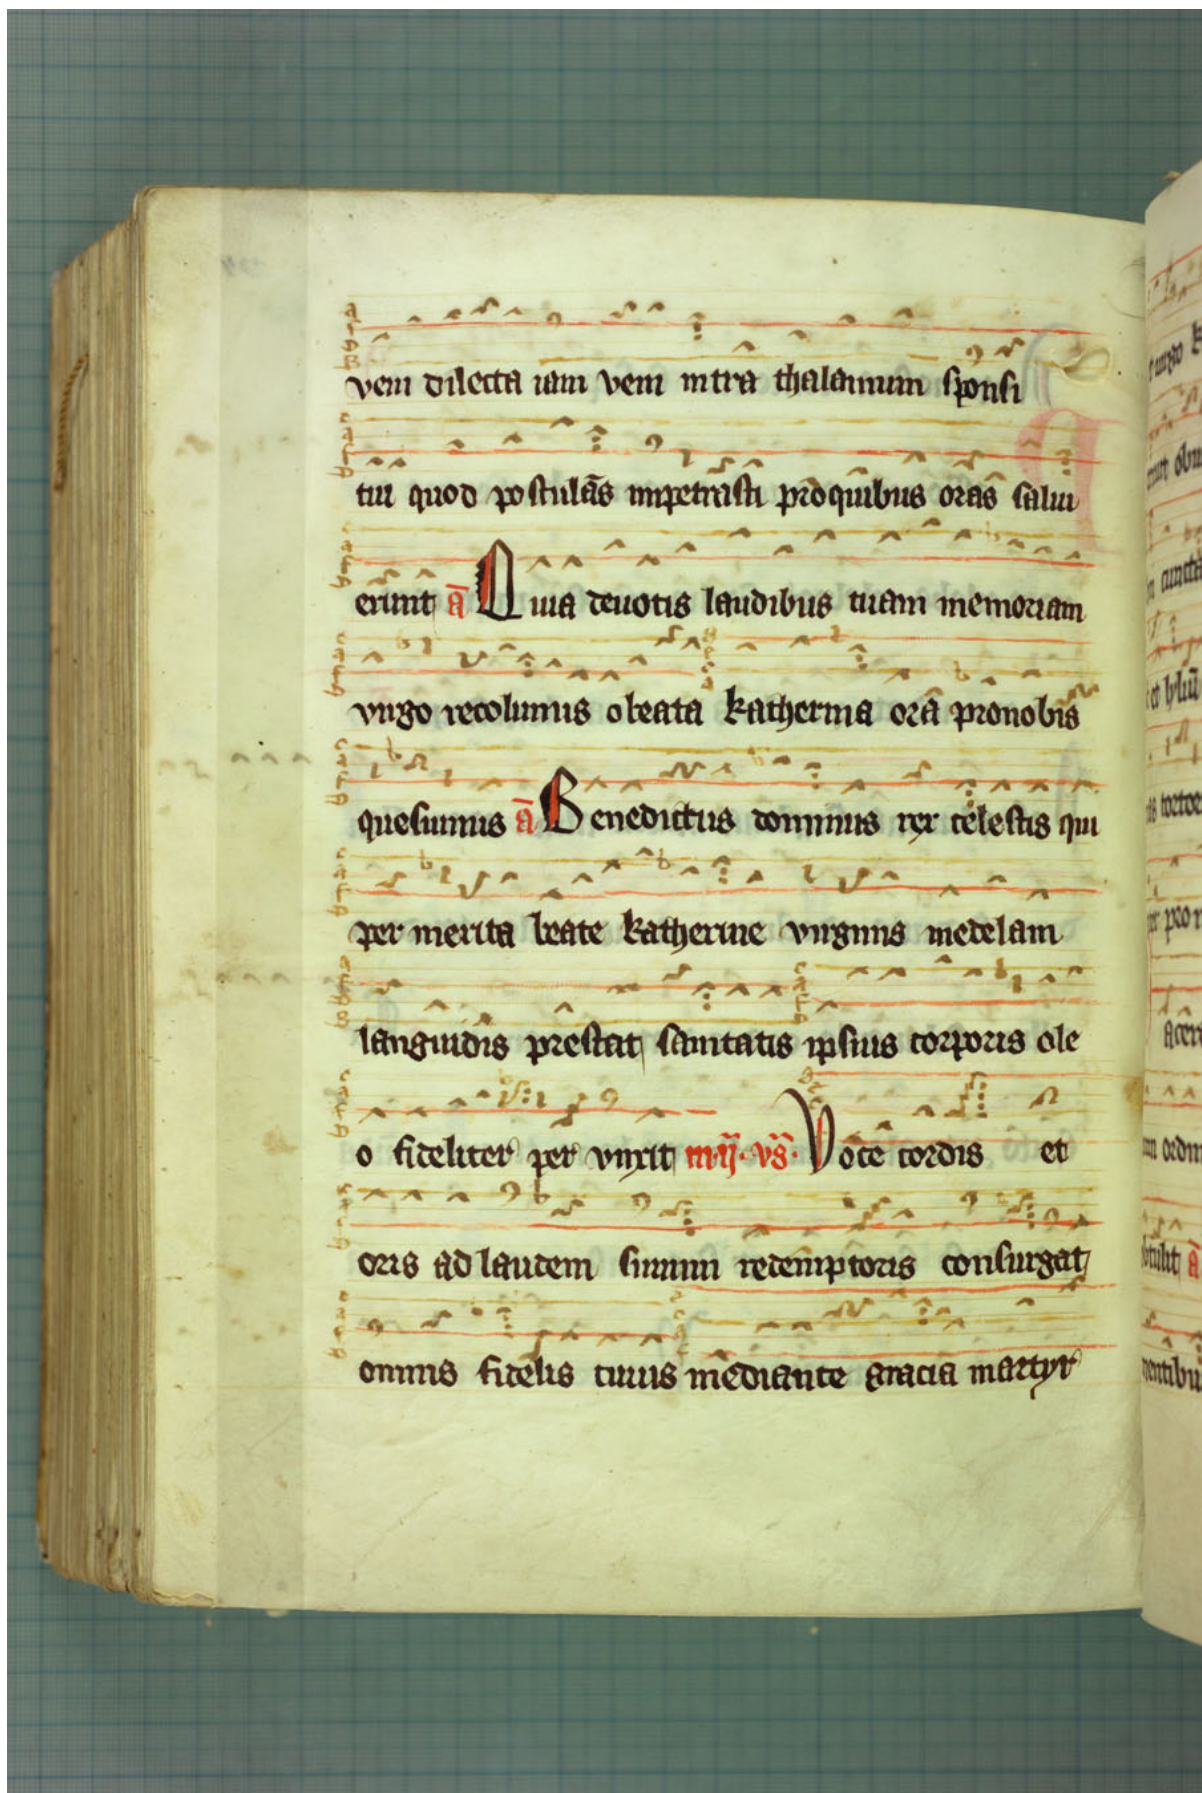 veni dilecta iam veni intra thalamum sponsi
tui quod postulas impetrasti pro quibus oras salui
erunt ā Quia deuotis laudibus tuam memoriam
virgo recolimus o beata katherina ora pro nobis
quesumus ā Benedictus dominus rex celestis qui
per merita beate katherine virginis medelam
languidis prestat sanitatis ipsius corporis ole
o fideliter per vnxit in ij. vs̄. Voce cordis et
oris ad laudem summi redemptoris consurgat
omnis fidelis ciuis mediante gracia martyr